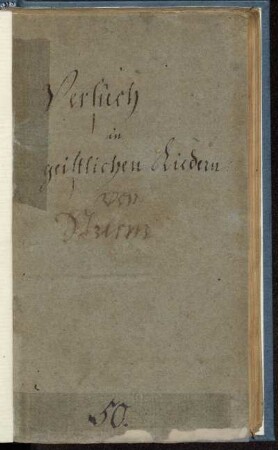 Versuch
in
geistlichen Liedern
von
Sturm
50.